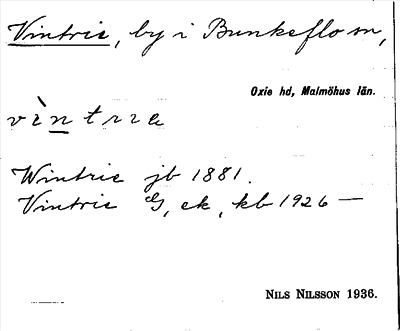 Vintrie, by i Bunkeflo sn,
Oxie hd, Malmöhus län.
vìntria
Wintrie jb 1881.
Vintrie GS, ek, kb 1926 —
NILS NILSSON 1936.